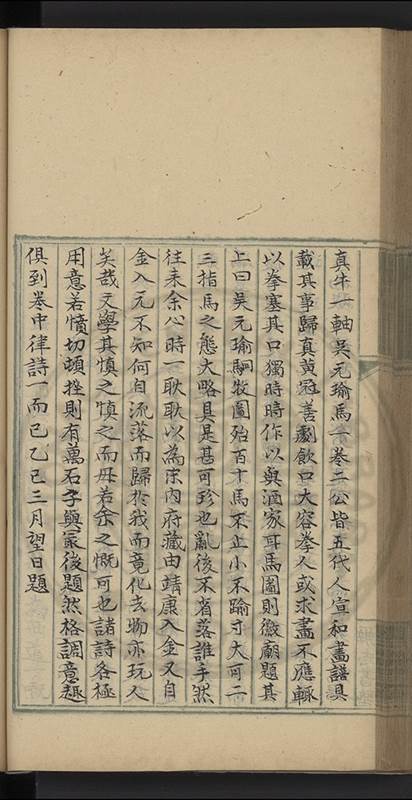 真牛一軸吳元瑜馬一卷二公皆五代人宣和畫譜具
載其事歸真黃冠善劇飲口大容拳人或求畫不應輒
以拳塞其口獨時時作以與酒家耳馬圖則徽廟題其
上曰吳元瑜駉牧圖殆百十馬不止小不踰寸大可二
三指馬之態大略具是甚可珍也亂後不省落誰手然
往来余心時一耿耿以為宋内府藏由靖康入金又自
金入元不知何自流落而歸於我而竟化去物亦玩人
矣哉文學其慎之慎之而毋若余之慨可也諸詩各極
用意若憤切頓挫則有萬石子與家後題然格調意趣
俱到卷中律詩一而已乙已三月望日題